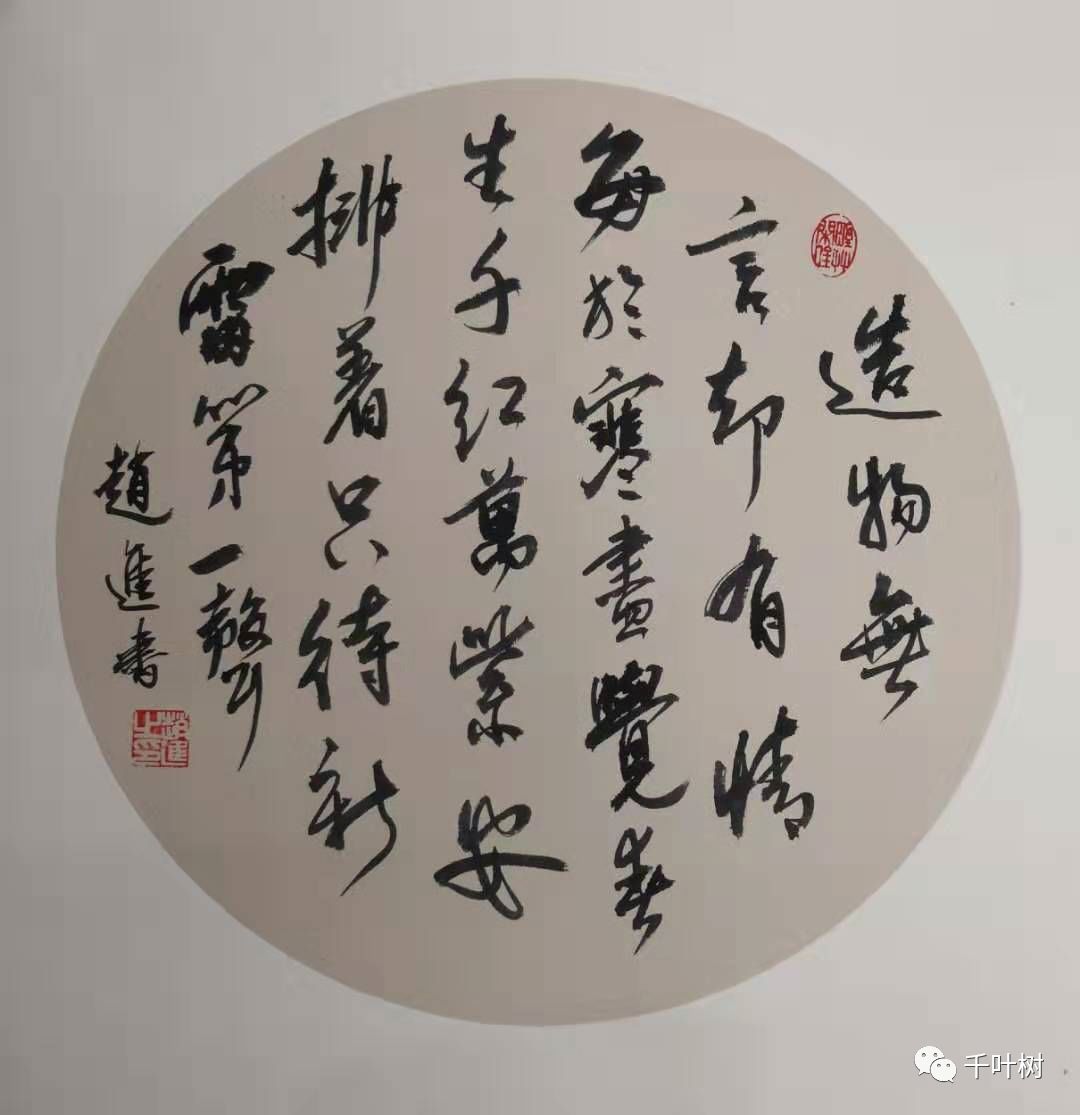 造物無
言却有情
每於寒盡覺春
生千红萬紫安
排着只待新
雷第一聲
趙進書
趙進之印
千叶树